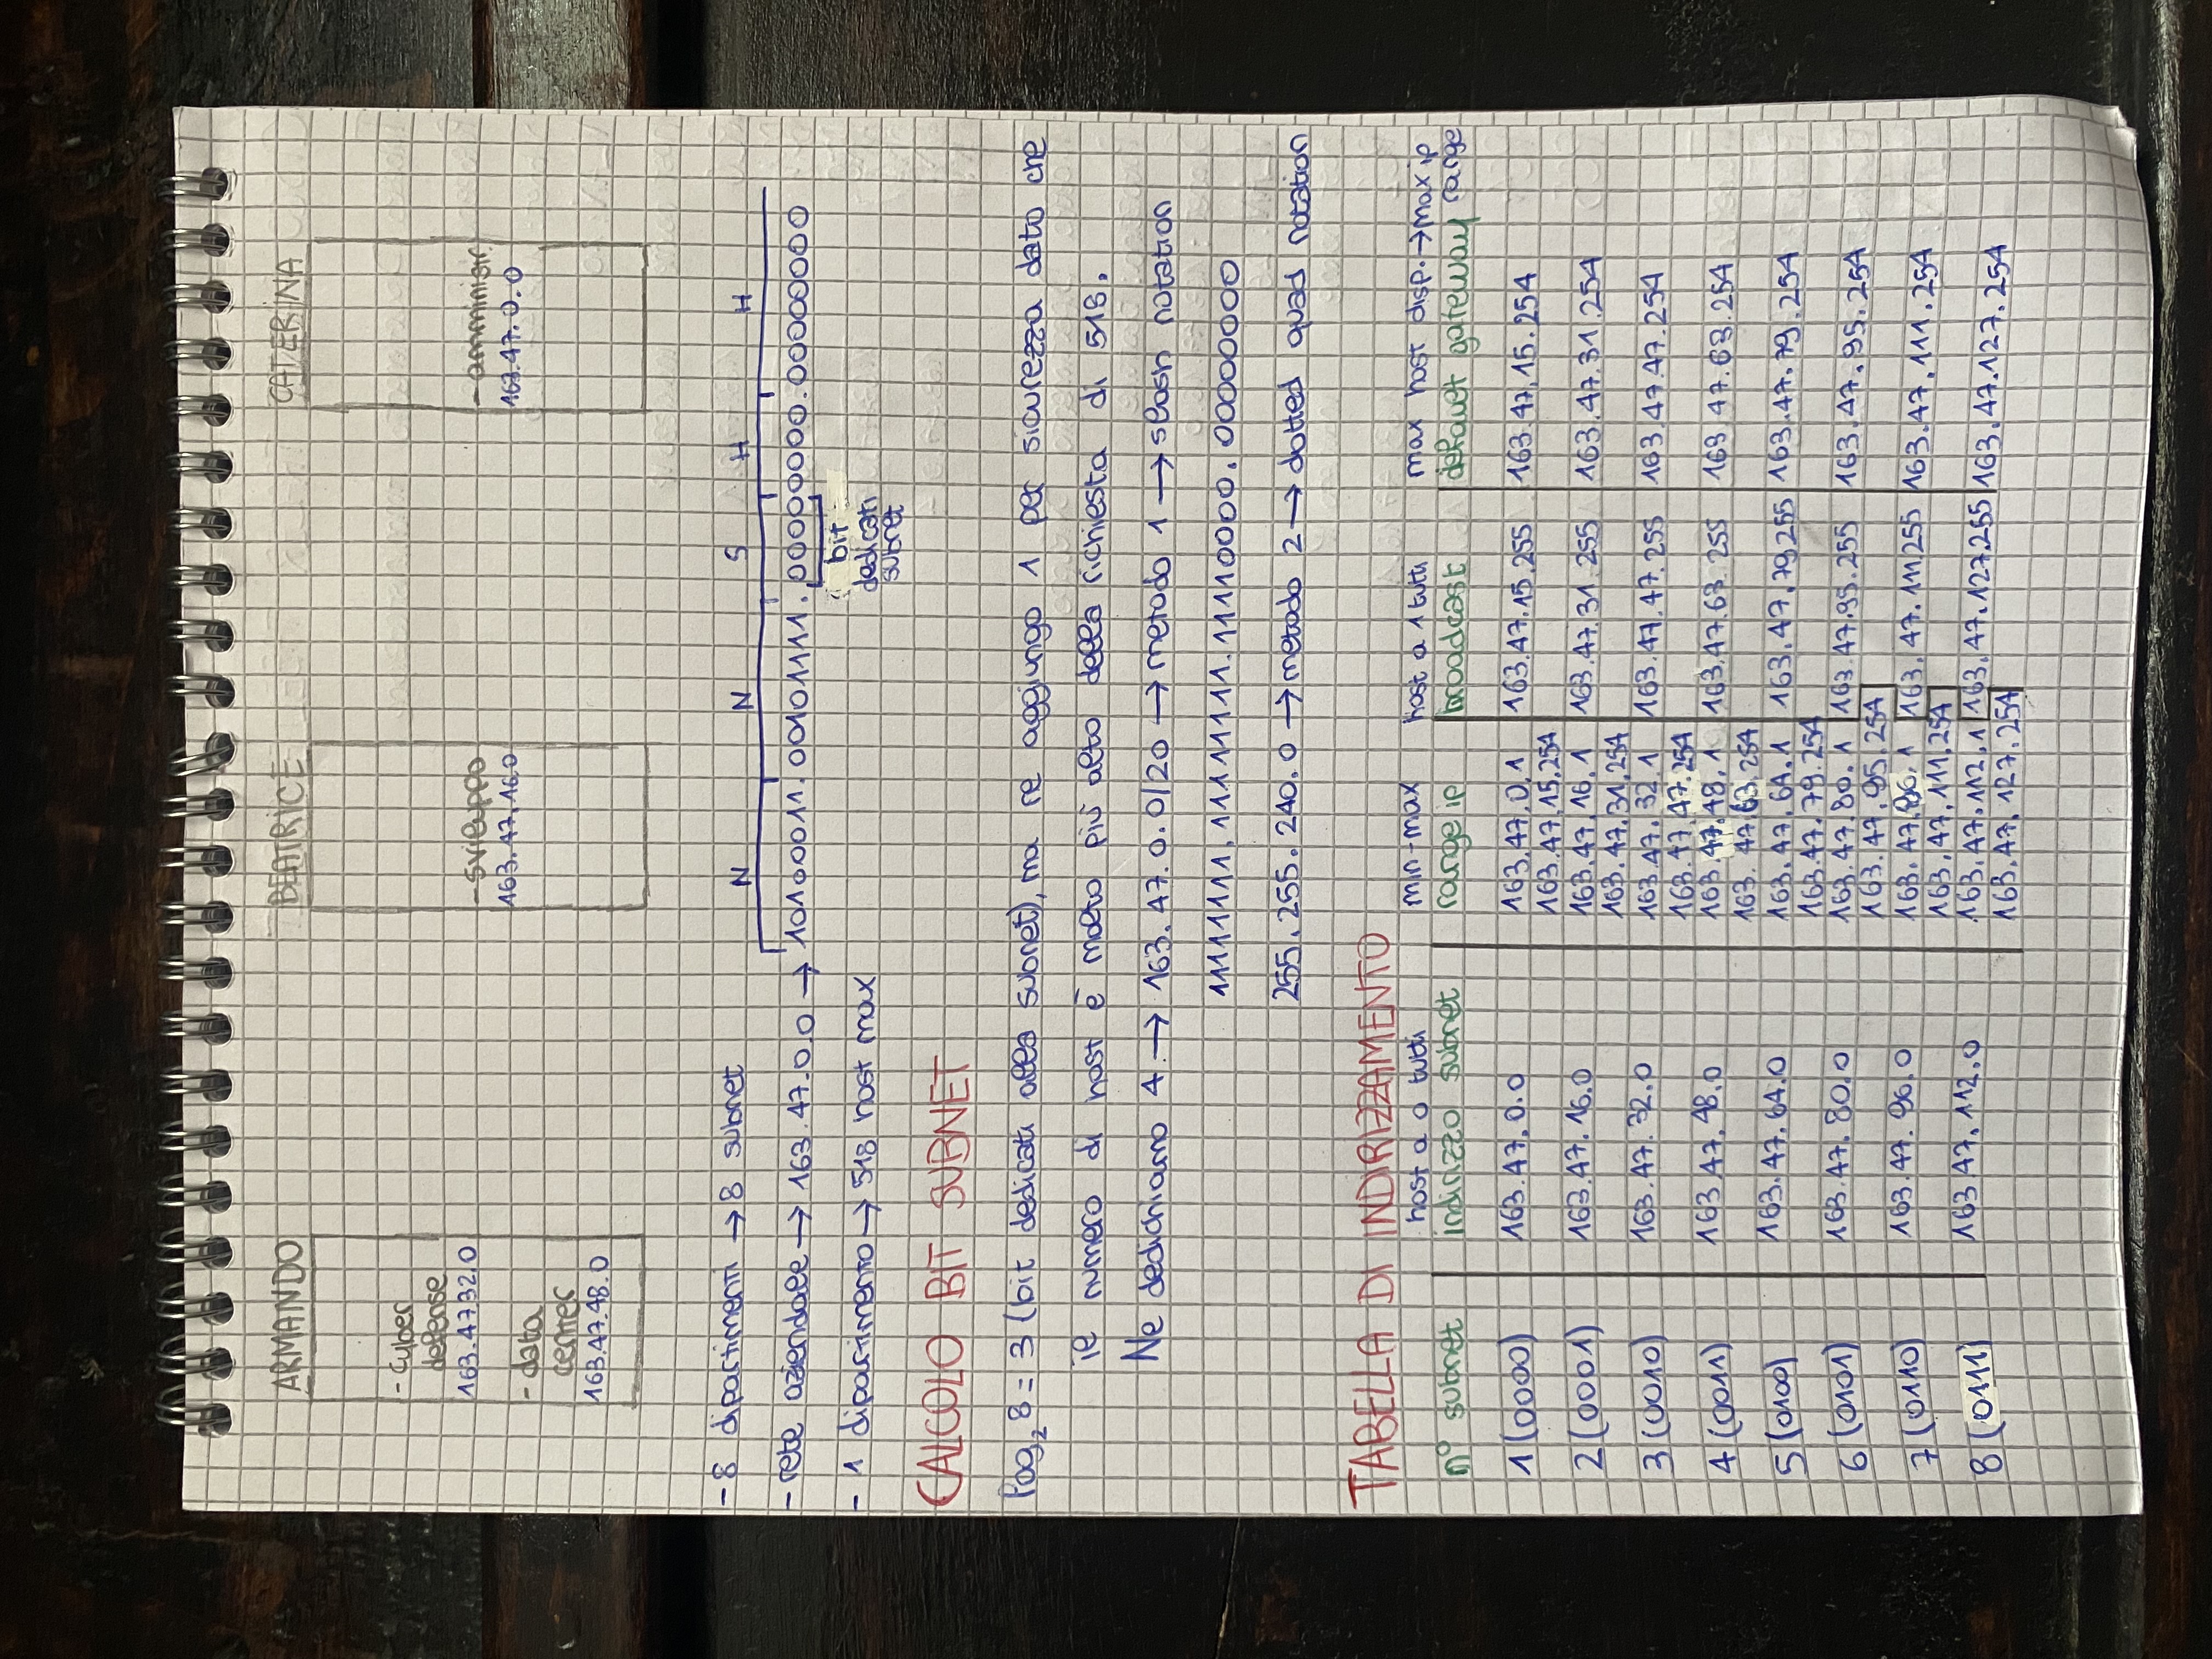 ARMANDO BEATRICE CATERINA
- cyber
defense
163.47.32.0
- sviluppo - amministr.
163.47.16.0 163.47.0.0
- data
center
163.47.48.0
- 8 dipartimenti → 8 subnet
N N S H H
- rete aziendale → 163.47.0.0 → 10100011.00101111.00000000.00000000
bit
dedicati
subnet
- 1 dipartimento → 518 host max
CALCOLO BIT SUBNET
log₂ 8 = 3 (bit dedicati alla subnet), ma ne aggiungo 1 per sicurezza dato che
il numero di host è molto più alto della richiesta di 518.
Ne dedichiamo 4 → 163.47.0.0/20 → metodo 1 → slash notation
11111111.11111111.11110000.00000000
255.255.240.0 → metodo 2 → dotted quad notation
TABELLA DI INDIRIZZAMENTO
host a 0 tutti min-max host a 1 tutti max host disp. → max ip
n° subnet indirizzo subnet range ip broadcast default gateway range
1 (0000) 163.47.0.0 163.47.0.1 163.47.15.255 163.47.15.254
163.47.15.254
2 (0001) 163.47.16.0 163.47.16.1 163.47.31.255 163.47.31.254
163.47.31.254
3 (0010) 163.47.32.0 163.47.32.1 163.47.47.255 163.47.47.254
163.47.47.254
4 (0011) 163.47.48.0 163.47.48.1 163.47.63.255 163.47.63.254
163.47.63.254
5 (0100) 163.47.64.0 163.47.64.1 163.47.79.255 163.47.79.254
163.47.79.254
6 (0101) 163.47.80.0 163.47.80.1 163.47.95.255 163.47.95.254
163.47.95.254
7 (0110) 163.47.96.0 163.47.96.1 163.47.111.255 163.47.111.254
163.47.111.254
8 (0111) 163.47.112.0 163.47.112.1 163.47.127.255 163.47.127.254
163.47.127.254